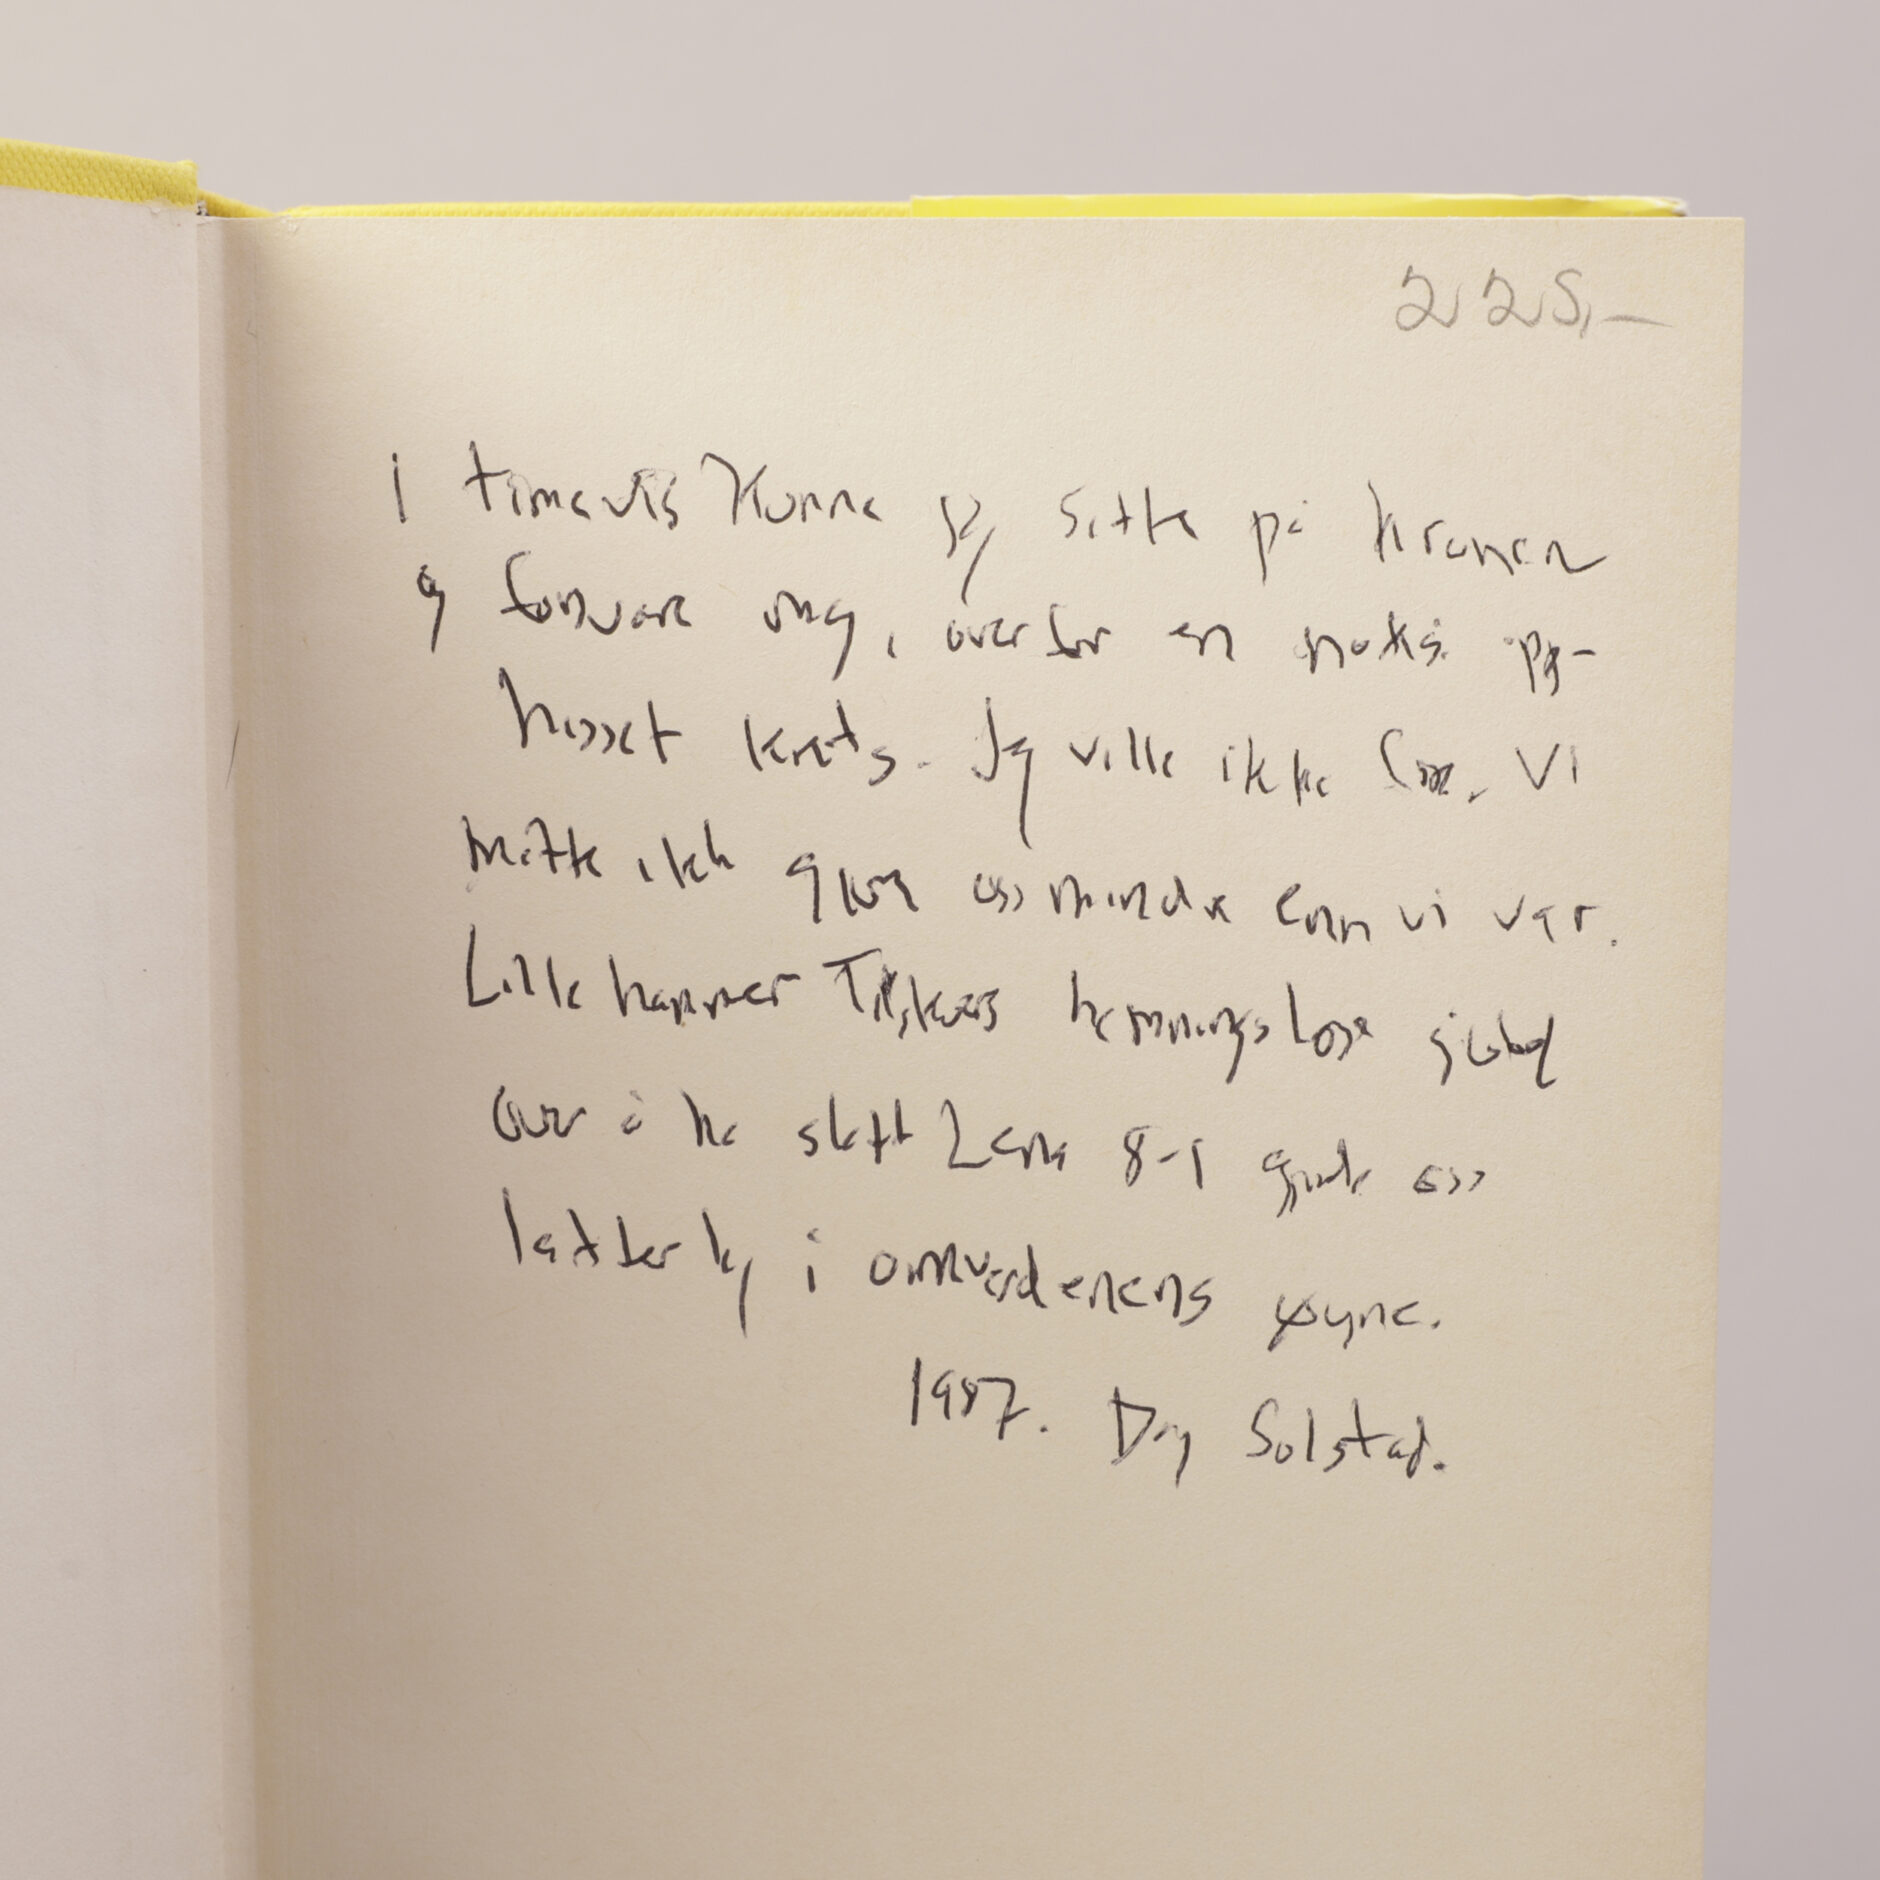 225,-
I timevis kunne jeg sitte på kronen
og forsvare meg, overfor en nokså opp-
hisset krets. Jeg ville ikke løse. Vi
måtte ikke gjøre oss mindre enn vi var.
Lillehammer Tilskuers hemningsløse jubel
over å ha slått Lena 8-1 gjorde oss
latterlig i omverdenens øyne.
1987. Dag Solstad.